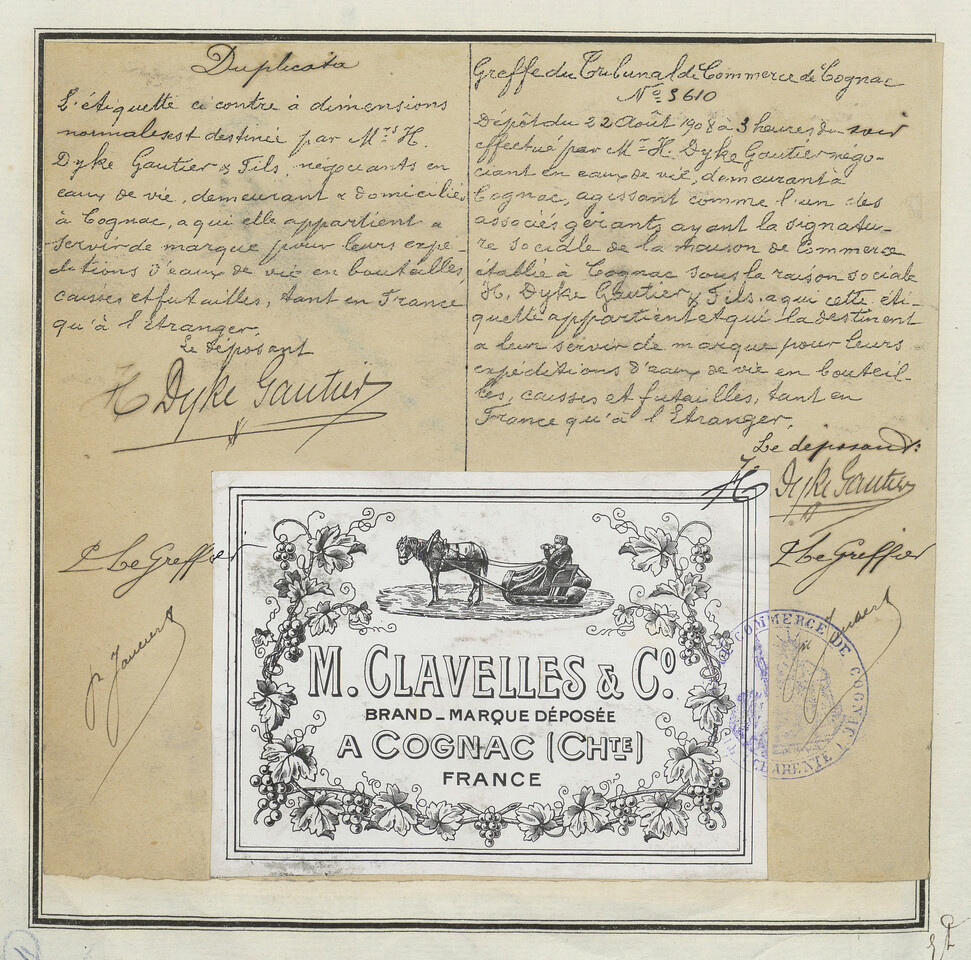 Duplicata
L'étiquette ci contre à dimensions
normales est destinée par Mrs H.
Dyke Gautier & Fils, négociants en
eaux de vie, demeurant & domiciliés
à Cognac, a qui elle appartient a
servir de marque pour leurs expé-
ditions d'eaux de vie en bouteilles
caisses et futailles, tant en France
qu'à l'Etranger.
Le déposant
H Dyke Gautier
P Le Greffier
Greffe du Tribunal de Commerce de Cognac
No 3610
Dépôt du 22 Août 1908 à 3 heures du soir
effectué par Mr H. Dyke Gautier négo-
ciant en eaux de vie, demeurant à
Cognac, agissant comme l'un des
associés gérants ayant la signatu-
re sociale de la maison de Commerce
établie à Cognac sous la raison sociale
H. Dyke Gautier & Fils, a qui cette éti-
quette appartient et qui la destinent
a leur servir de marque pour leurs
expéditions d'eaux de vie en bouteil-
les, caisses et futailles, tant en
France qu'à l'Etranger.
Le déposant:
H Dyke Gautier
P Le Greffier
M. CLAVELLES & Co.
BRAND_MARQUE DÉPOSÉE
A COGNAC (CHTE)
FRANCE
COMMERCE DE COGNAC
CHARENTE